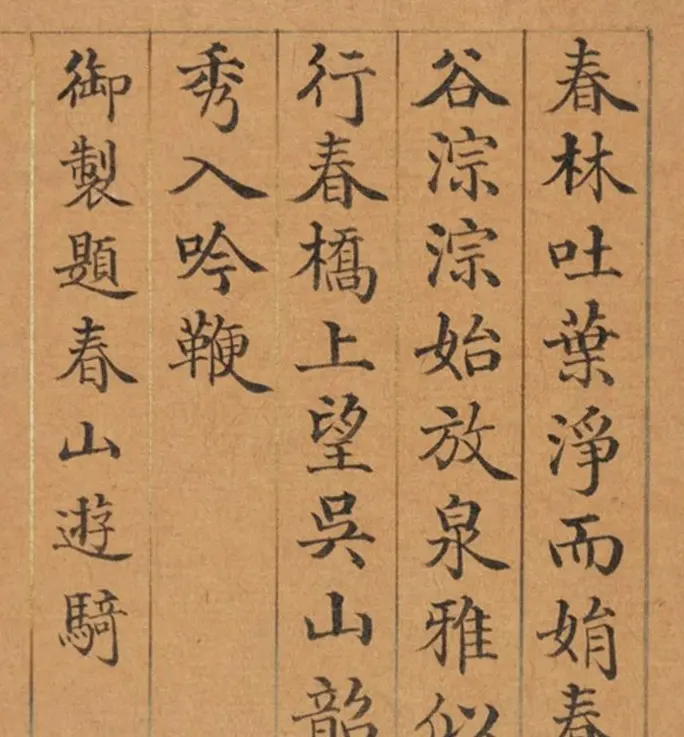 春林吐葉淨而娟春
谷淙淙始放泉雅似
行春橋上望吳山韶
秀入吟鞭
御製題春山遊騎